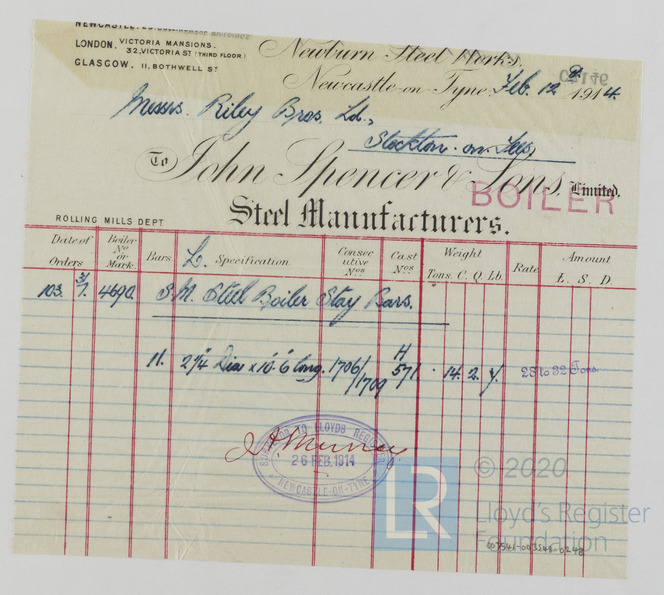 LONDON, VICTORIA MANSIONS.
32, VICTORIA ST (THIRD FLOOR)
GLASGOW, 11, BOTHWELL ST
Newburn Steel Works,
Newcastle-on-Tyne, Feb. 12 1914.
Messrs. Riley Bros. Ld.,
Stockton-on-Tees
To John Spencer & Sons, Limited.
BOILER
Steel Manufacturers.
ROLLING MILLS DEPT
Date of Orders Boiler No. or Mark. Bars. L. Specification Consecutive Nos Cast Nos Weight Tons. C. Q. Lb. Rate Amount £. S. D.
103. 3/7. 4690. S.M. Steel Boiler Stay Bars.
11. 2 1/4" Dia x 10'. 6" long. 1706/1709 H 571 14. 2. 28 to 32 Tons.
SURVEYOR TO LLOYDS REGISTER
J. Murray
26 FEB. 1914
NEWCASTLE-ON-TYNE
LR
© 2020
Lloyd's Register
Foundation